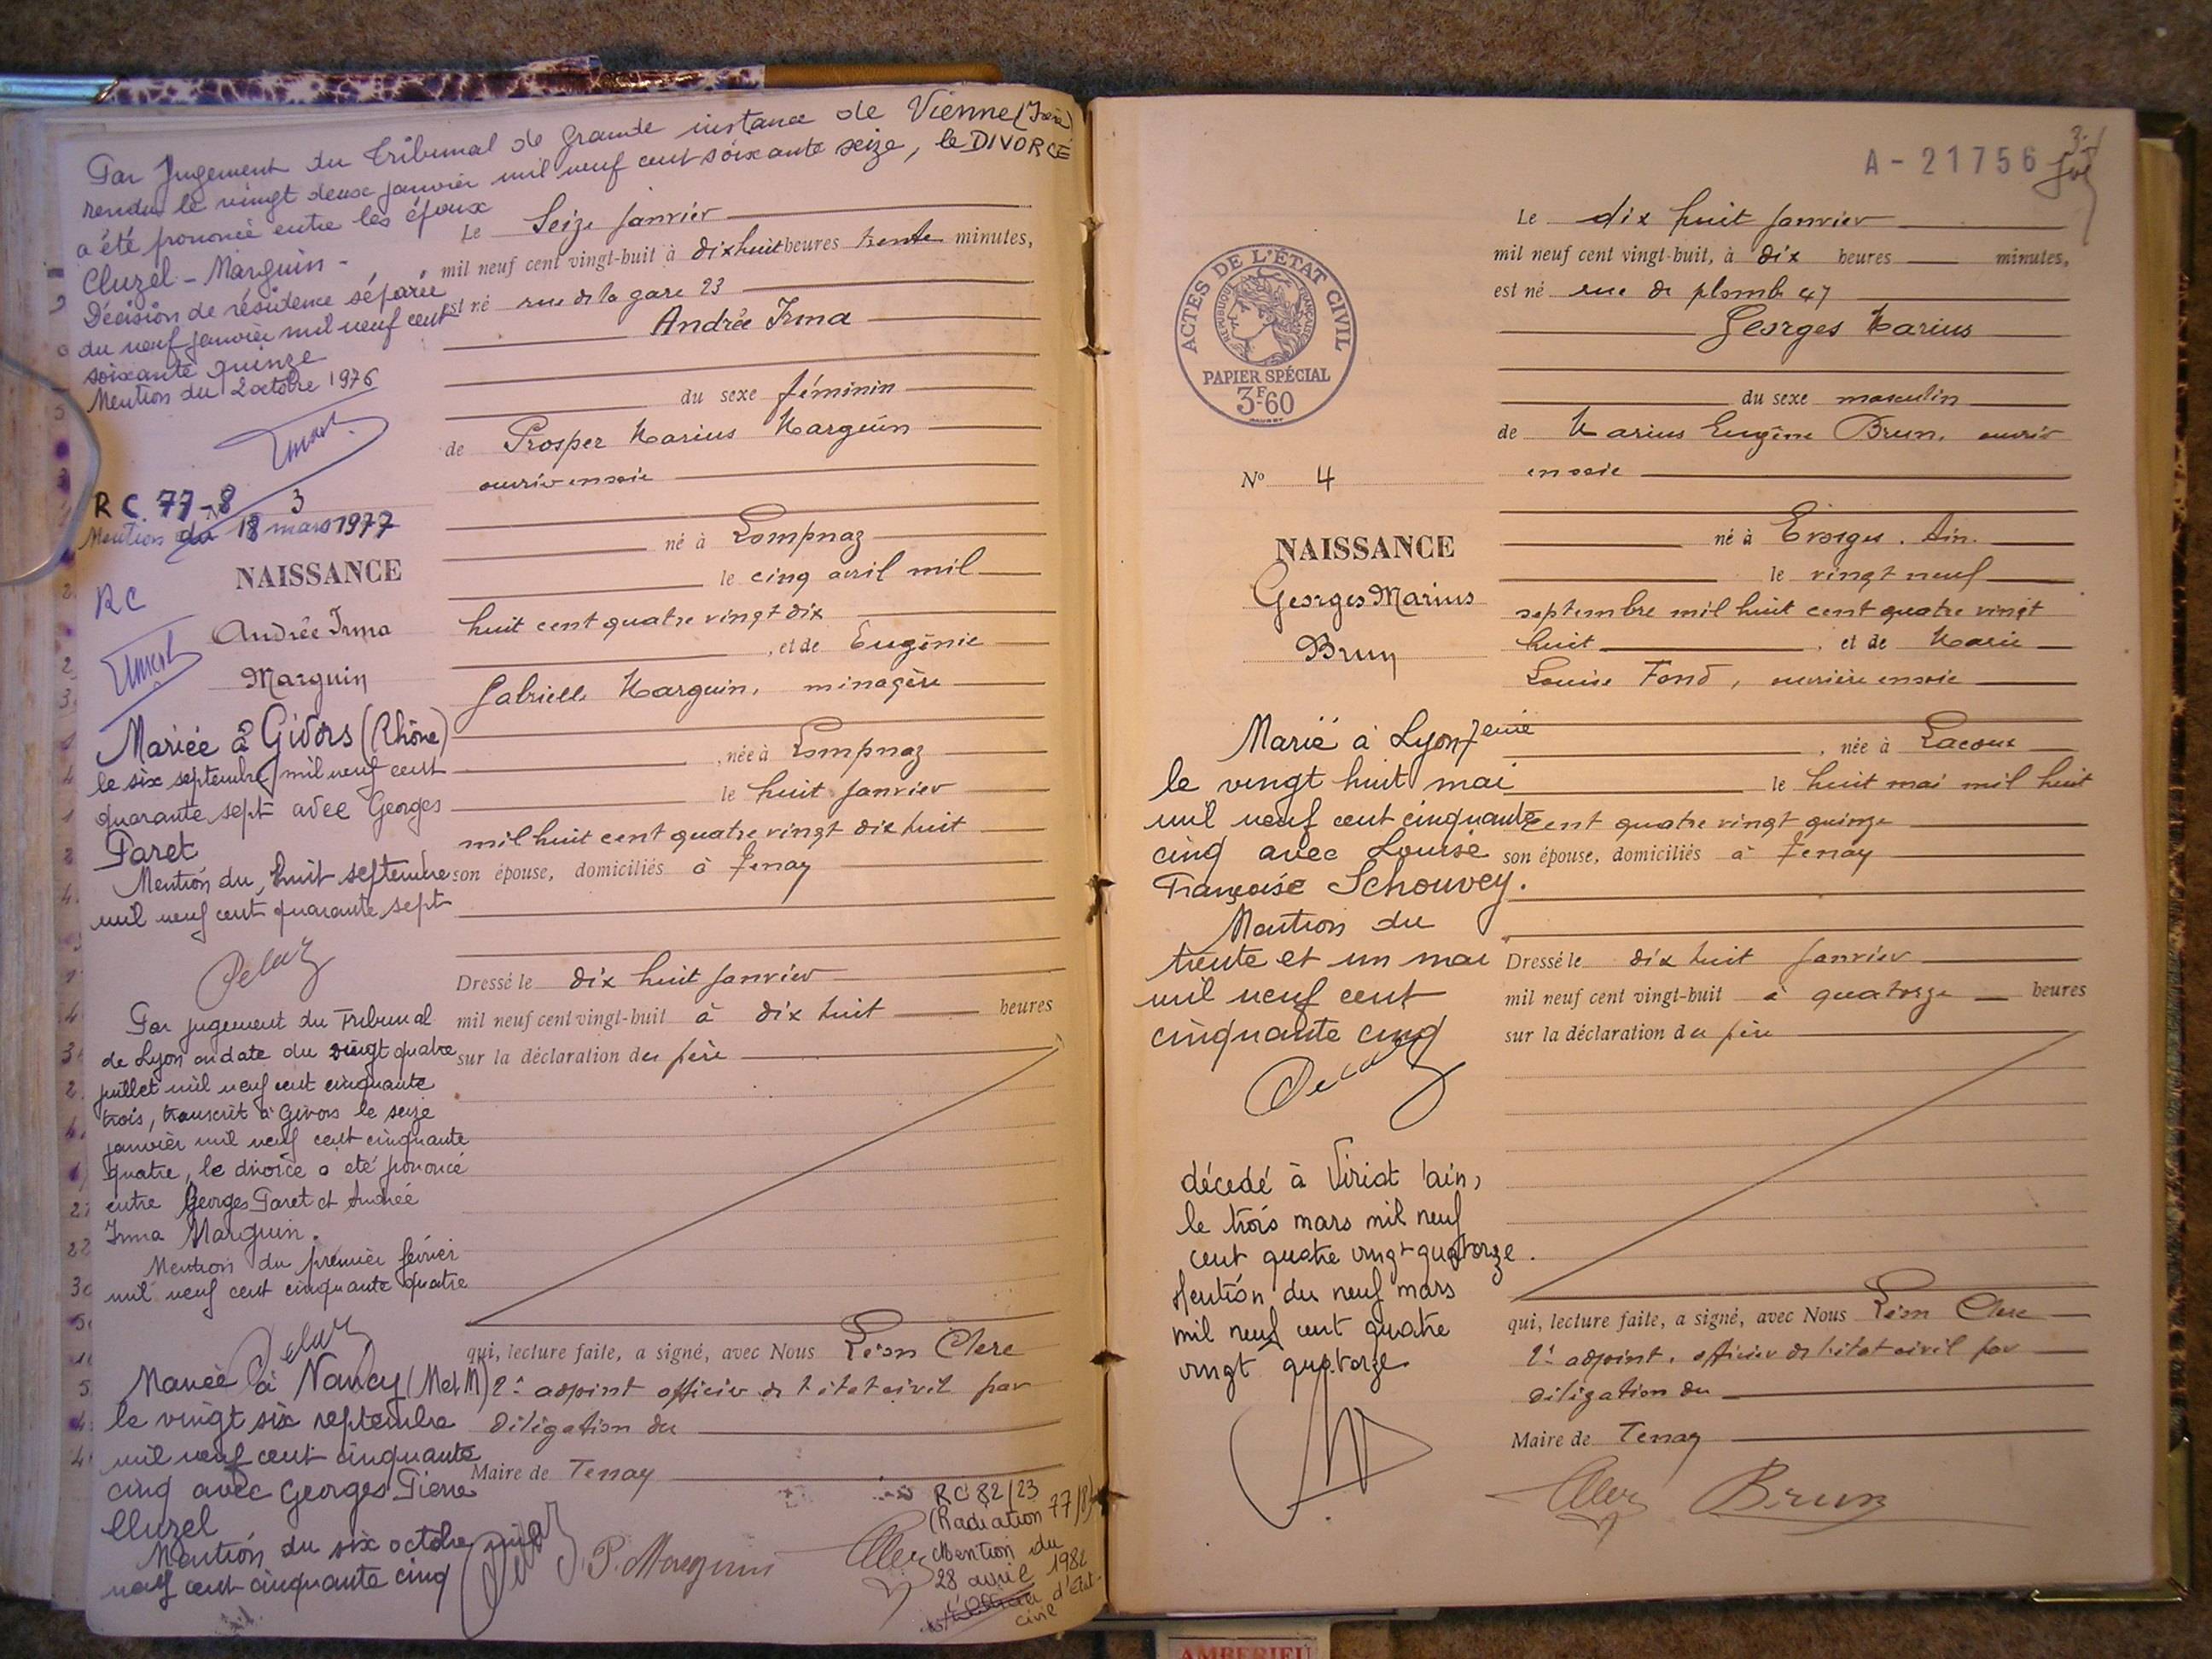 Par Jugement du Tribunal de Grande instance de Vienne (Isère)
rendu le vingt deux janvier mil neuf cent soixante seize, le DIVORCE
a été prononcé entre les époux
Cluzel - Marguin -
Décision de résidence séparée
du neuf janvier mil neuf cent
soixante quinze
Mention du 2 octobre 1976
RC 77-8
N° 3
Mention du 18 mars 1977
NAISSANCE
RC
Andrée Irma
Marguin
Mariée à Givors (Rhône)
le six septembre mil neuf cent
quarante sept avec Georges
Paret
Mention du huit septembre
mil neuf cent quarante sept
Par jugement du Tribunal
de Lyon en date du vingt quatre
juillet mil neuf cent cinquante
trois, transcrit à Givors le seize
janvier mil neuf cent cinquante
quatre, le divorce a été prononcé
entre Georges Paret et Andrée
Irma Marguin.
Mention du premier février
mil neuf cent cinquante quatre
Mariée à Nancy (M et M)
le vingt six septembre
mil neuf cent cinquante
cinq avec Georges Pierre
Cluzel
Mention du six octobre mil
neuf cent cinquante cinq
Le Seize janvier
mil neuf cent vingt-huit à dix huit heures trente minutes,
est né rue de la gare 23
Andrée Irma
du sexe féminin
de Prosper Marius Marguin
ouvrier en soie
né à Lompnaz
le cinq avril mil
huit cent quatre vingt dix
, et de Eugénie
Gabrielle Marguin, ménagère
, née à Lompnaz
le huit janvier
mil huit cent quatre vingt dix huit
son épouse, domiciliés à Tenay
Dressé le dix huit janvier
mil neuf cent vingt-huit à dix huit heures
sur la déclaration du père
qui, lecture faite, a signé, avec Nous Léon Clerc
2e adjoint officier de l'état civil par
délégation du
Maire de Tenay
P. Marguin
Clerc
RC 82/23
(Radiation 77/8)
Mention du
28 avril 1982
d'état-
civil
A - 21756
ACTES DE L'ÉTAT CIVIL
RÉPUBLIQUE FRANÇAISE
PAPIER SPÉCIAL
3F60
N° 4
NAISSANCE
Georges Marius
Brun
Marié à Lyon 7eme
le vingt huit mai
mil neuf cent cinquante
cinq avec Louise
Françoise Schouvey.
Mention du
trente et un mai
mil neuf cent
cinquante cinq
décédé à Viriat (ain)
le trois mars mil neuf
cent quatre vingt quatorze.
Mention du neuf mars
mil neuf cent quatre
vingt quatorze
Le dix huit janvier
mil neuf cent vingt-huit, à dix heures minutes,
est né rue de plomb 47
Georges Marius
du sexe masculin
de Marius Eugène Brun, ouvrier
en soie
né à Evosges. Ain.
le vingt neuf
septembre mil huit cent quatre vingt
huit, et de Marie
Louise Fond, ouvrière en soie
, née à Lacoux
le huit mai mil huit
cent quatre vingt quinze
son épouse, domiciliés à Tenay
Dressé le dix huit janvier
mil neuf cent vingt-huit à quatorze heures
sur la déclaration du père
qui, lecture faite, a signé, avec Nous Léon Clerc
2e adjoint, officier de l'état civil par
délégation du
Maire de Tenay
Clerc
Brun
AMBERIEU